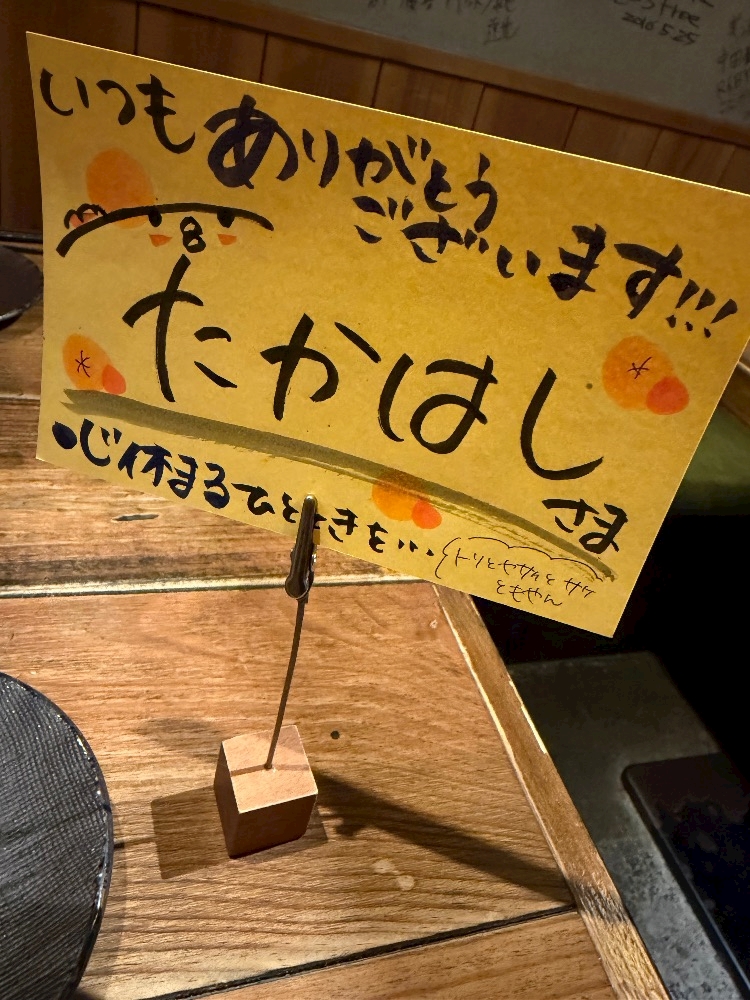 いつもありがとう
ございます!!!
たかはし
さま
心休まるひとときを・・・
トリとヤサイとサケ
ともやん
2016.5.25